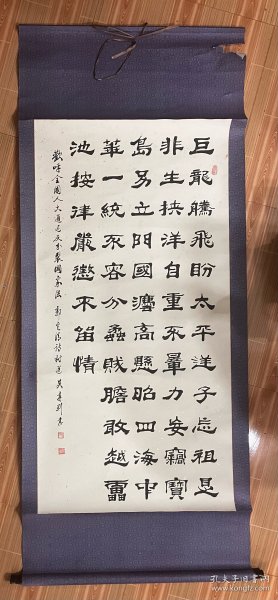 巨龍騰飛盼太平逆子忘祖恩
非生挾洋自重不量力妄竊寶
島另立門國灋高懸昭四海中
華一統不容分蟊賊膽敢越雷
池按律嚴懲不留情
歡呼全國人大通過反分裂國家法
孔夫子旧书网